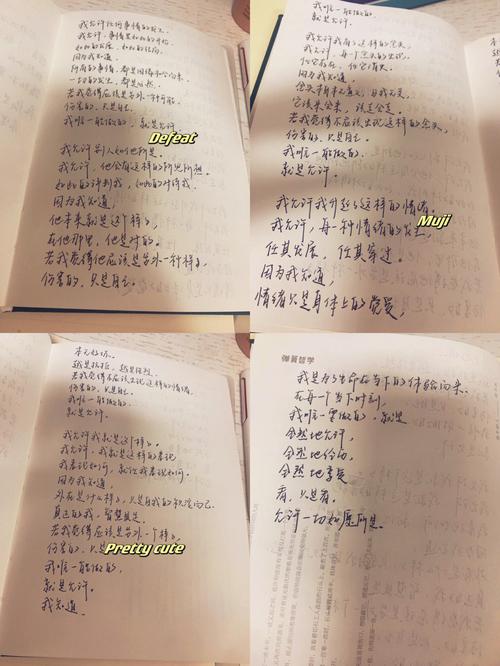 我允许任何事情的发生
我允许,事情是如此的开始
如此的发展,如此的结局
因为我知道,
所有的事情,都是因缘和合而来
一切的发生,都是必然
若我觉得应该是另外一种可能
伤害的,只是自己
我唯一能做的,就是允许
Defeat
我允许别人如他所是。
我允许,他会有这样的所思所想
如此的评判我,如此的对待我
因为我知道,
他本来就是这个样子,
在他那里,他是对的。
若我觉得他应该是另外一种样子,
伤害的,只是自己。
我唯一能做的,
就是允许。
我允许我有了这样的念头,
我允许,每一个念头的出现,
任它存在,任它消失。
因为我知道,
念头本身本无意义,与我无关,
它该来会来,该走会走。
若我觉得不应该出现这样的念头,
伤害的,只是自己。
我唯一能做的,
就是允许。
我允许我升起了这样的情绪,
我允许,每一种情绪的发生,
Muji
任其发展,任其穿过。
因为我知道,
情绪只是身体上的觉受,
本无好坏。
越是抗拒,越是强烈。
若我觉得不应该出现这样的情绪,
伤害的,只是自己。
我唯一能做的,
就是允许。
我允许我就是这个样子。
我允许,我就是这样的表现
我表现如何,就任我表现如何。
因为我知道,
外在是什么样子,只是自我的积淀而已
真正的我,智慧具足。
若我觉得应该是另外一个样子,
伤害的,只是自己
Pretty cute
我唯一能做的,
就是允许。
我知道
弹簧哲学
我是为了生命在当下的体验而来。
在每一个当下时刻
我唯一要做的,就是
全然地允许,
全然地经历
全然地享受
看,只是看。
允许一切如其所是。